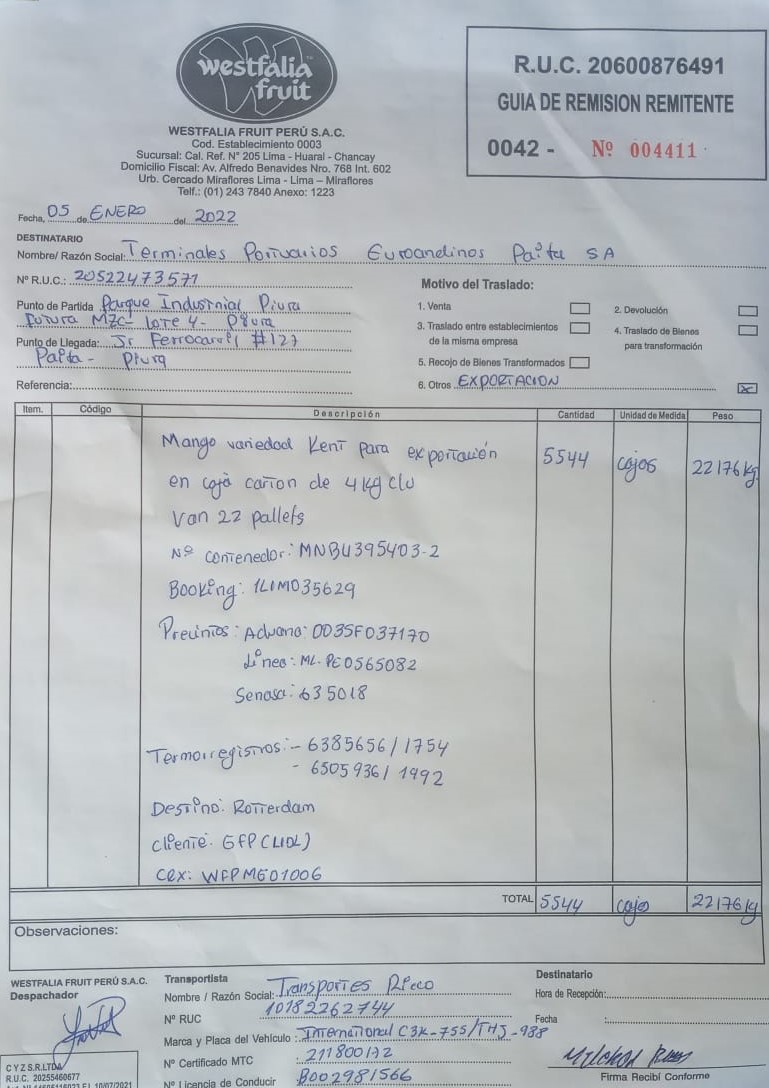 westfalia
fruit
WESTFALIA FRUIT PERÚ S.A.C.
Cod. Establecimiento 0003
Sucursal: Cal. Ref. N° 205 Lima - Huaral - Chancay
Domicilio Fiscal: Av. Alfredo Benavides Nro. 768 Int. 602
Urb. Cercado Miraflores Lima - Lima – Miraflores
Telf.: (01) 243 7840 Anexo: 1223
R.U.C. 20600876491
GUIA DE REMISION REMITENTE
0042 - Nº 004411
Fecha, 05 de ENERO del 2022
DESTINATARIO
Nombre/ Razón Social: Terminales Portuarios Euroandinos Paita SA
Nº R.U.C.: 20522473571
Punto de Partida Parque Industrial Piura
Futura MZC- Lote 4- Piura
Punto de Llegada: Jr Ferrocarril #127
Paita - Piura
Referencia:
Motivo del Traslado:
1. Venta
2. Devolución
3. Traslado entre establecimientos
de la misma empresa
4. Traslado de Bienes
para transformación
5. Recojo de Bienes Transformados
6. Otros EXPORTACION X
Item. Código Descripción Cantidad Unidad de Medida Peso
Mango variedad Kent para exportación 5544 cajas 22176 kg.
en caja carton de 4 kg c/u
Van 22 pallets
Nº contenedor: MNBU395403-2
Booking: 1LIM035629
Precintos: Aduana: 003SF037170
Línea: ML-PE0565082
Senasa: 635018
Termorregistros: - 6385656/1754
- 6505936/1992
Destino: Rotterdam
cliente: GFP (LIDL)
CRX: WFPMG01006
TOTAL 5544 cajas 22176 kg
Observaciones:
WESTFALIA FRUIT PERÚ S.A.C.
Despachador
Transportista
Nombre / Razón Social: Transportes Rico
Nº RUC 10182262744
Marca y Placa del Vehículo: International C3K-755/THJ-988
Nº Certificado MTC 211800172
Nº Licencia de Conducir B002981566
Destinatario
Hora de Recepción:
Fecha :
Firma Recibí Conforme
C Y Z S.R.LTDA
R.U.C. 20255460677